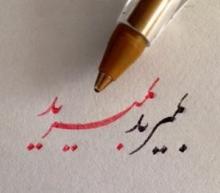 بمیرید بمیرید